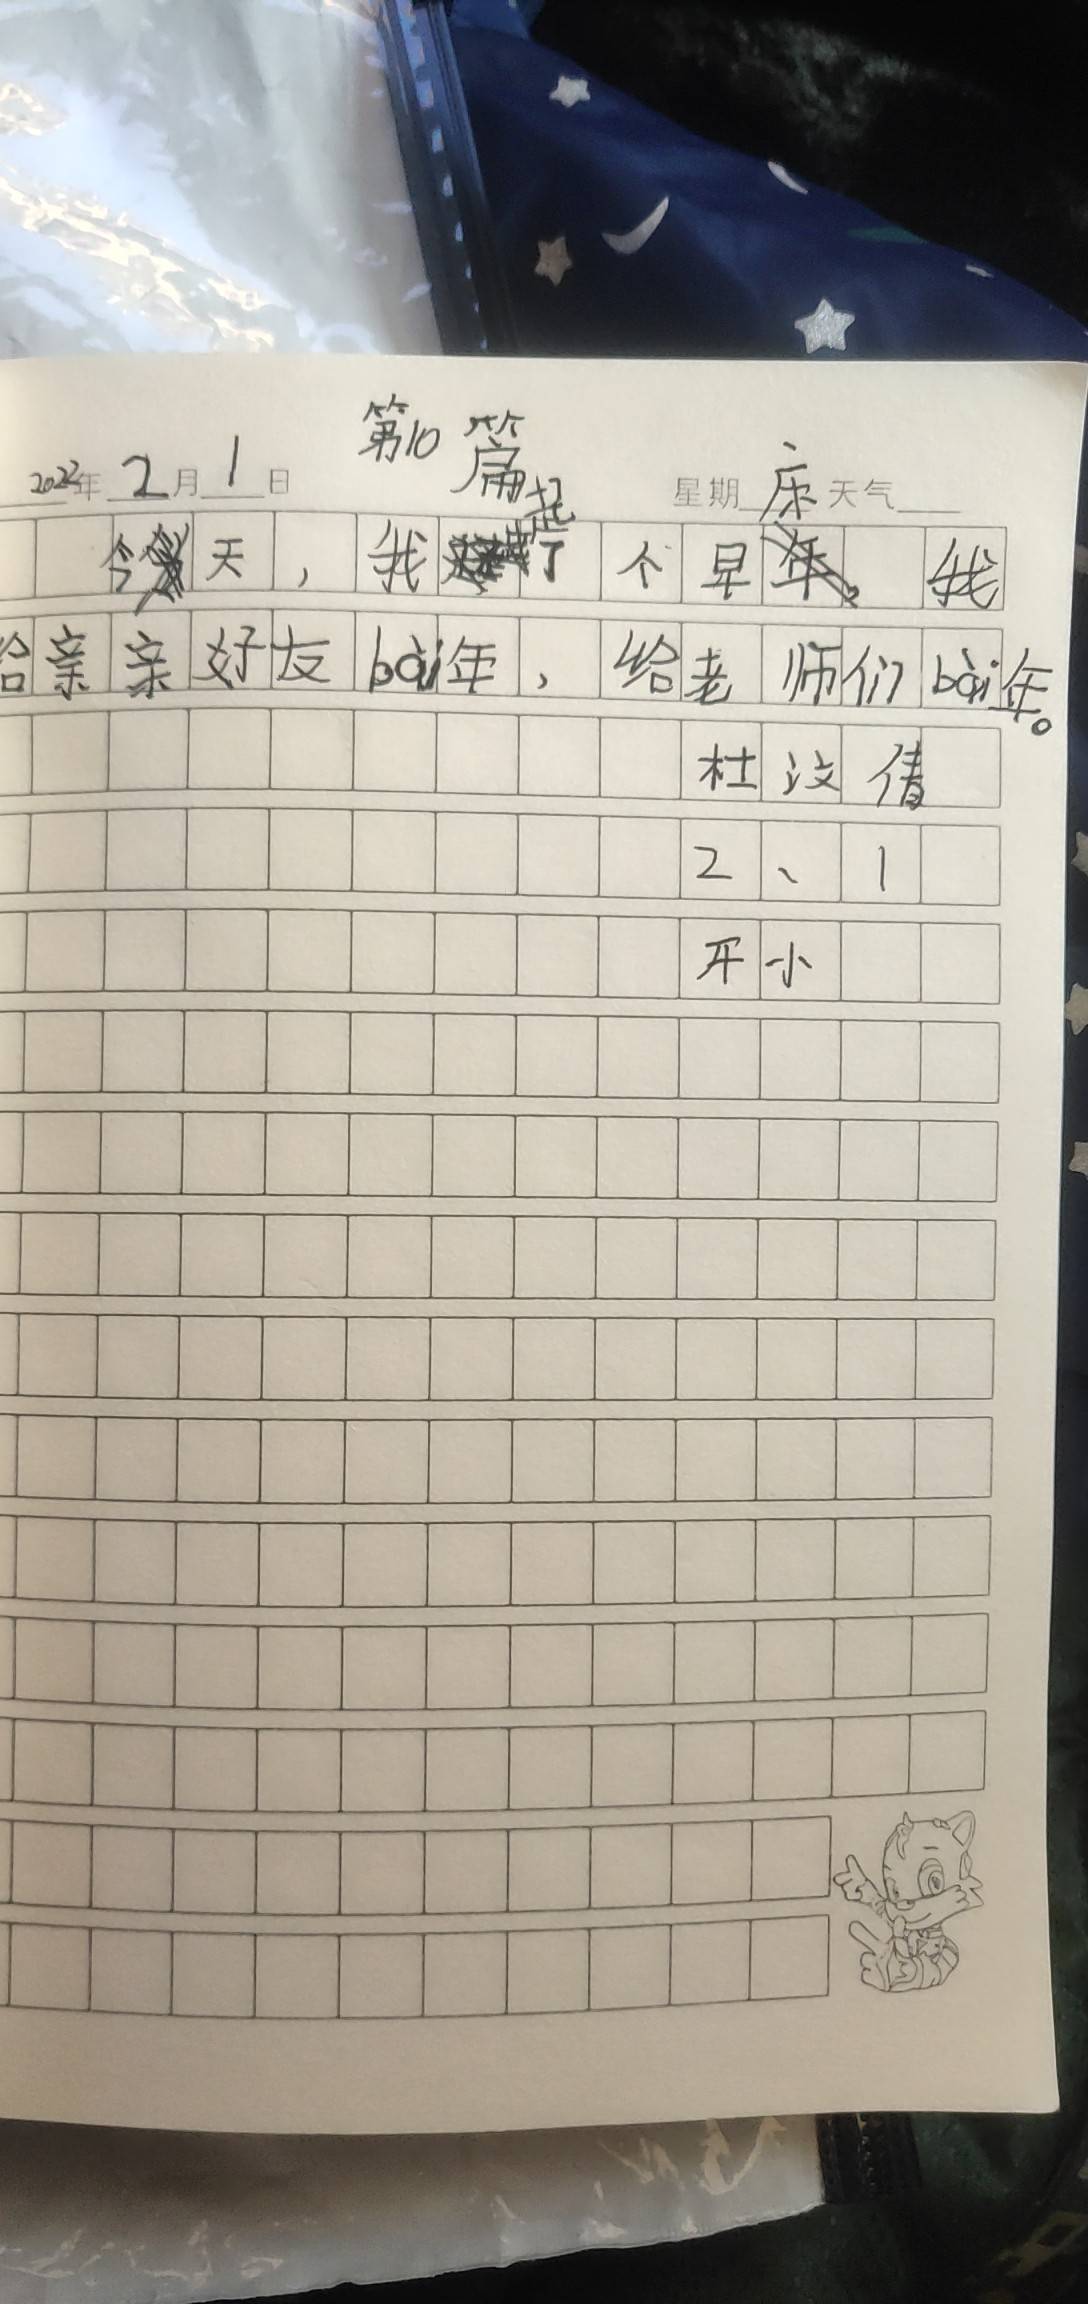 第10篇
2022年2月1日 星期 天气
今天，我起了个早。我
给亲亲好友bài年，给老师们bài年。
杜汶倩
2、1
开小